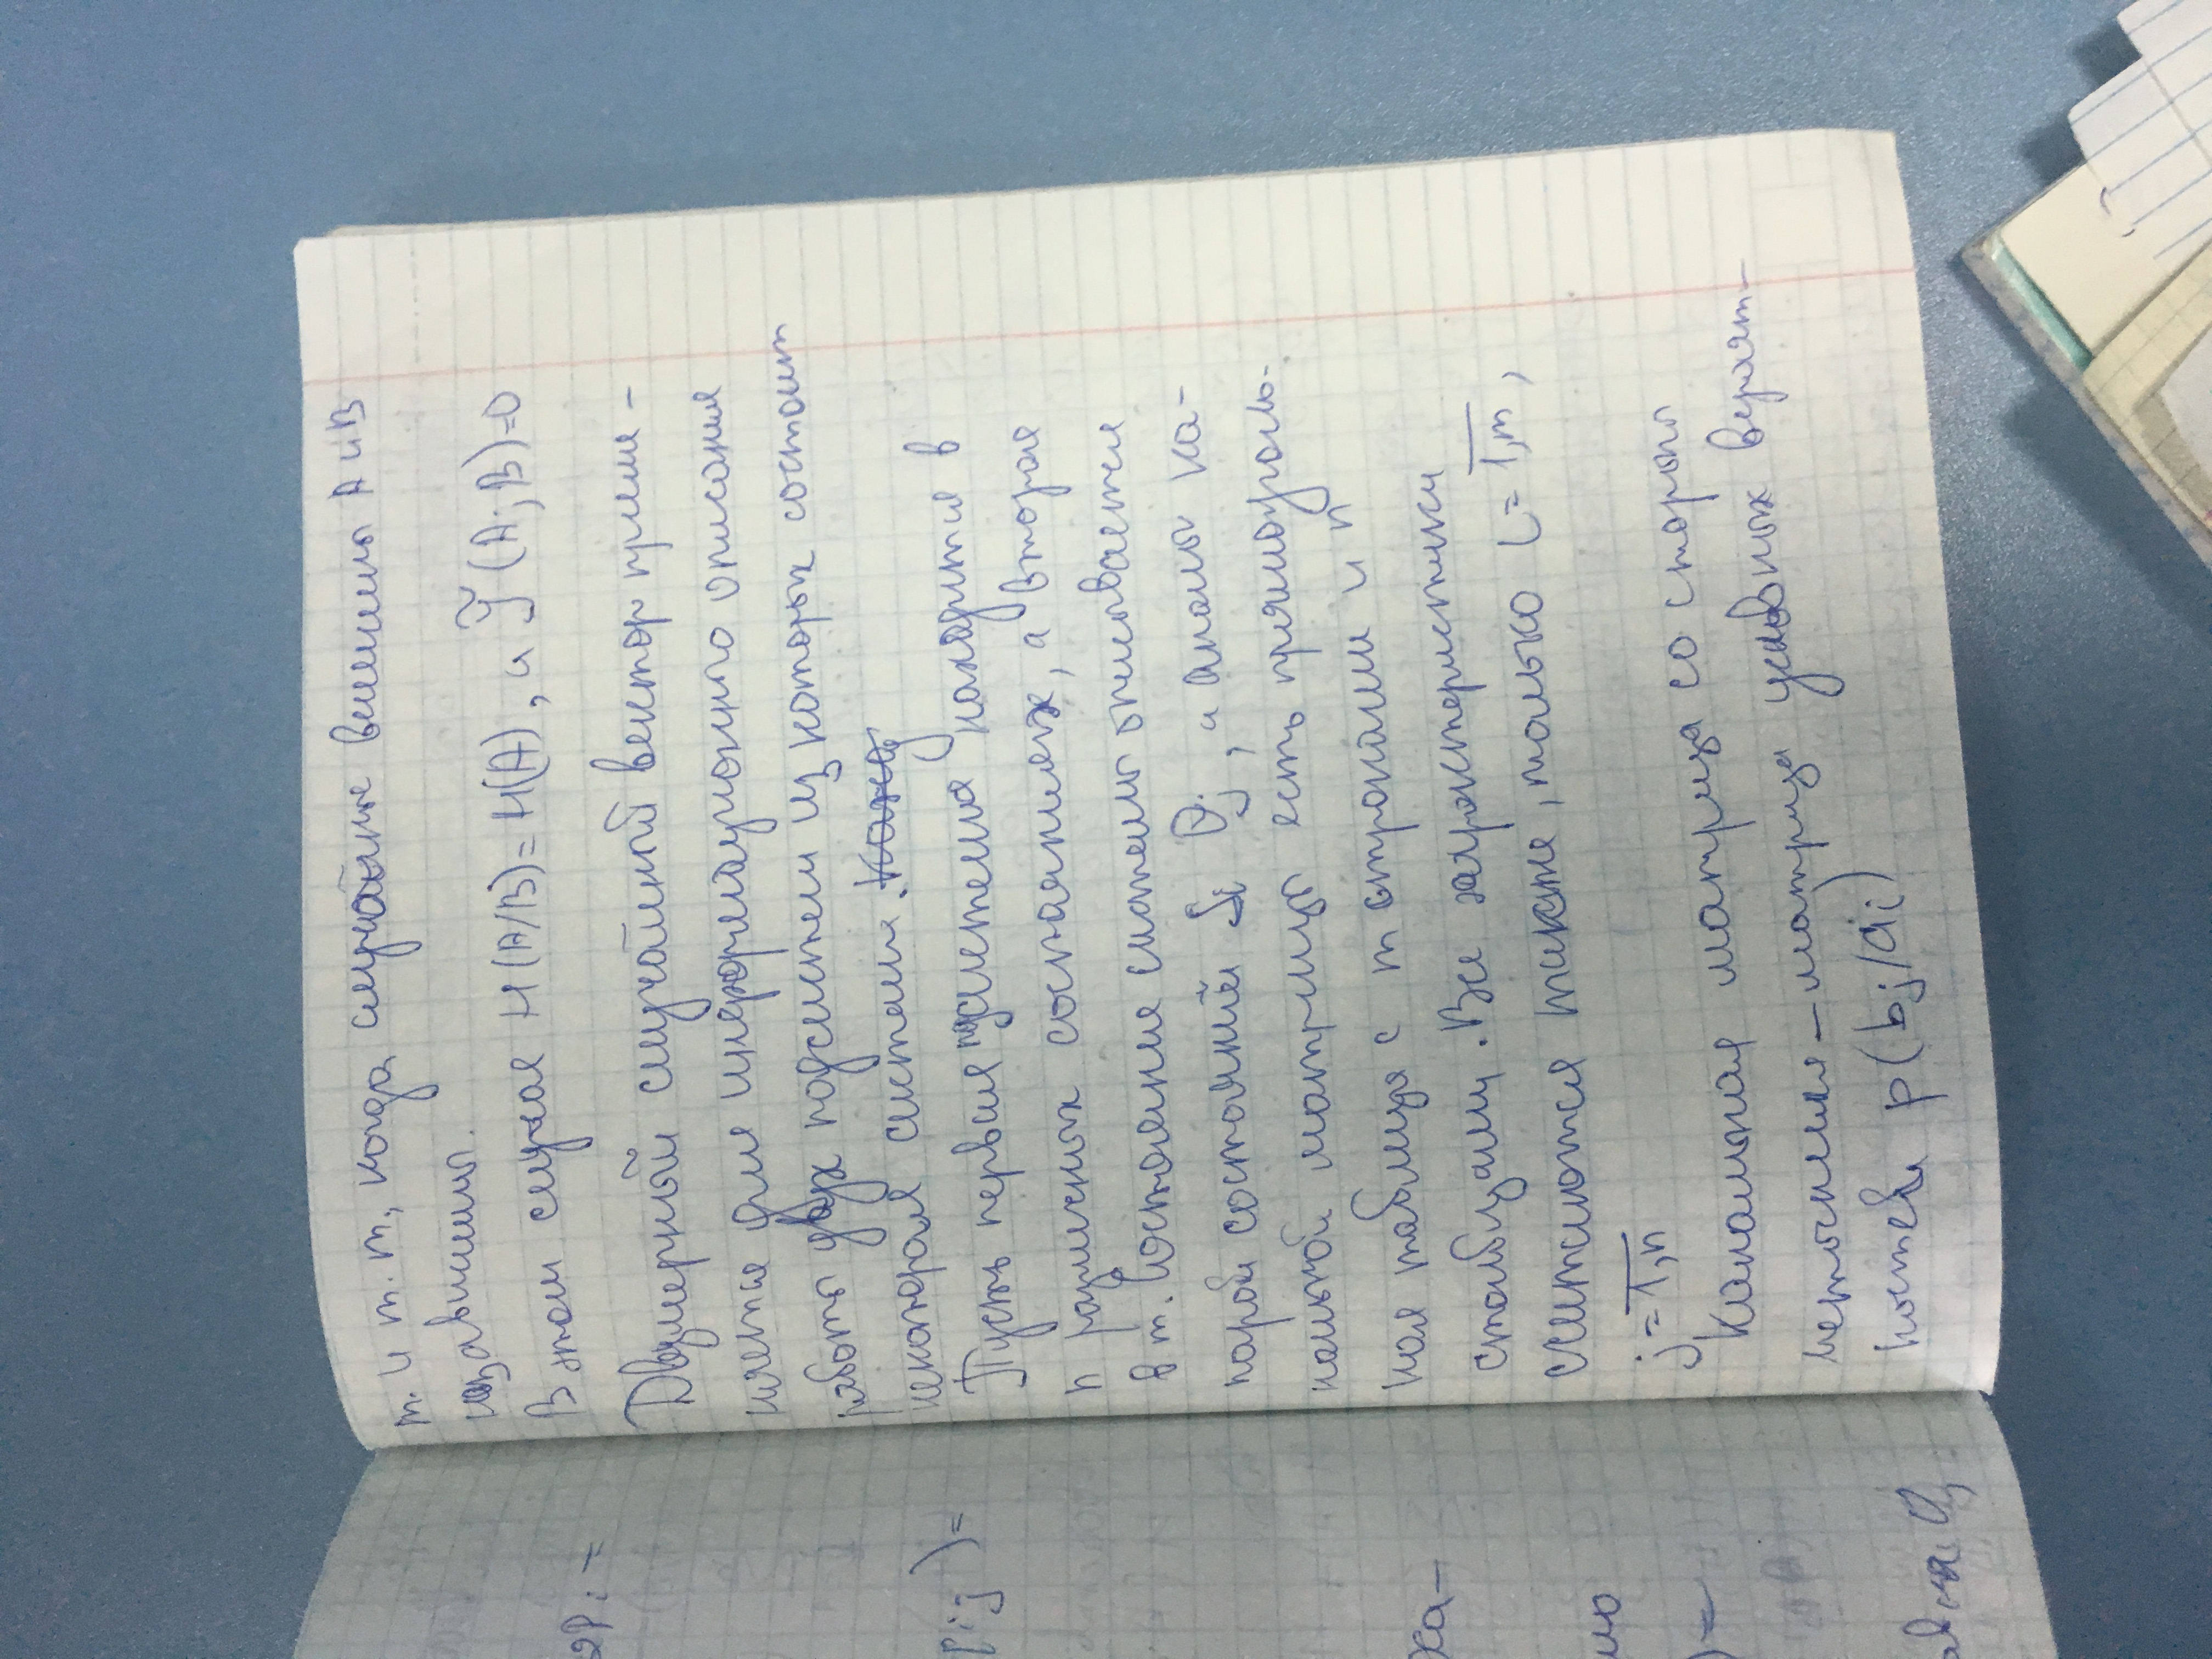 т. и т. т, когда случайные величины А и В
независимы.
В этом случае H(A/B)=H(A), а Ĩ(A;B)=0
Двумерный случайный вектор приме-
няется для информационного описания
работы двух подсистем из которых состоит
некоторая система. Кажд
Пусть первая подсистема находится в
n различных состояниях, а вторая
в m. Состояние системы описывается
парой состояний Si Qj, а
нальной матрицы есть прямоуголь-
ная таблица с m строками и n
столбцами. Все характеристики
считаются также, только i=1,m,
j=1,n
Канальная матрица со стороны
источника – матрица условных вероят-
ностей p(bj/ai)
2Pi =
pij)=
ха-
мо
)=
авна 0,